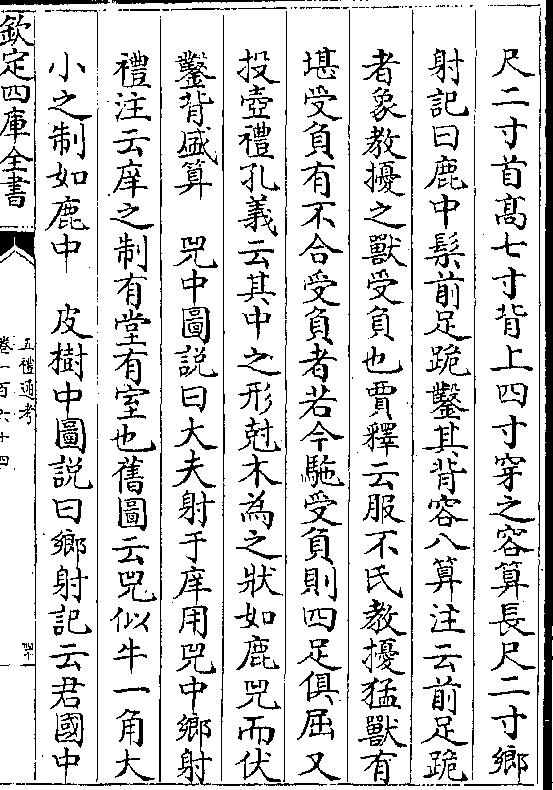 尺二寸首髙七寸背上四寸穿之容算長尺二寸鄉
射記曰鹿中髤前足跪鑿其背容八算注云前足跪
者象教擾之獸受負也賈釋云服不氏教擾猛獸有
堪受負有不合受負者若今駞受負則四足俱屈又
投壺禮孔義云其中之形尅木為之狀如鹿兕而伏
鑿背盛算　兕中圖説曰大夫射于庠用兕中鄉射
禮注云庠之制有堂有室也舊圖云兕似牛一角大
小之制如鹿中　皮樹中圖説曰鄉射記云君國中
欽定四庫全書
五禮通考
卷一百六十四
四十